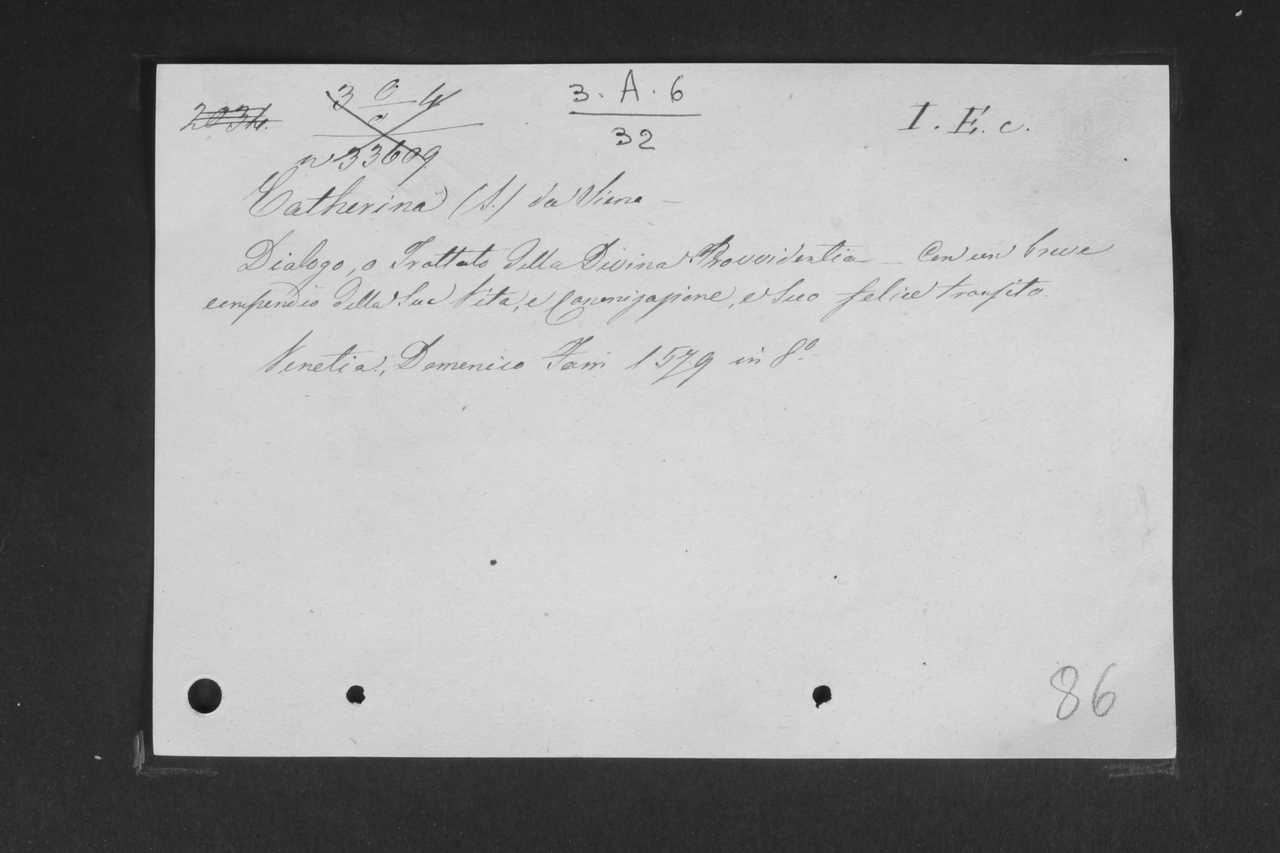 2034. 3 0 4 3. A. 6 I. E. c.
32
n 33609
Catherina (S.) da Siena —
Dialogo, o Trattato della Divina Providentia — Con un breve
compendio della sua Vita, e Canonizazione, e suo felice transito.
Venetia, Domenico Farri 1579 in 8.º
86